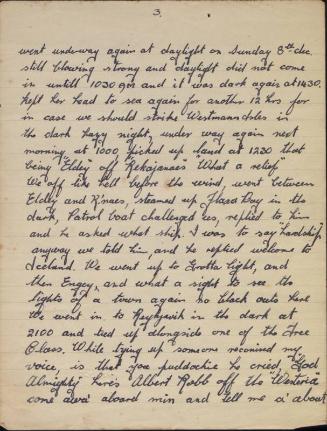 3.
went underway again at daylight on Sunday 8th dec.
still blowing strong and daylight did not come
in untill 1030 gmt and it was dark again at 1430.
kept her head to sea again for another 12 hrs for
in case we should strike Westmannoles in
the dark hazy night, under way again next
morning at 1000, picked up land at 1230 that
being "Eldey" off Rekajanaes "What a relief"
We off like hell before the wind, went between
Eldey and R'naes, steamed up Flaxa Bay in the
dark, Patrol boat challenged us, replied to him
and he asked what ship. I was to say "hardship"
anyway we told him, and he replied welcome to
Iceland. We went up to Grotta light, and
then Engey, and what a sight to see the
lights of a town again no black outs here
We went in to Reykjavik in the dark at
2100 and tied up alongside one of the Tree
Class. While tying up someone reconised my
voice, is that you puddockie he cried, "God
Almighty" here's Albert Robb off the "Westeria
come awa' aboard min and tell me a' about